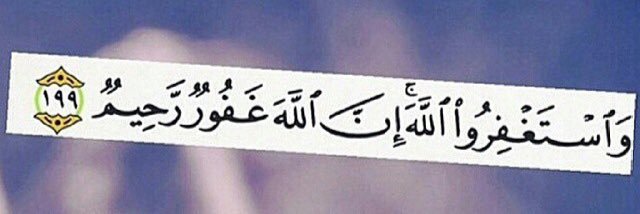 وَٱسۡتَغۡفِرُواْ ٱللَّهَۚ إِنَّ ٱللَّهَ غَفُورٞ رَّحِيمٞ ١٩٩